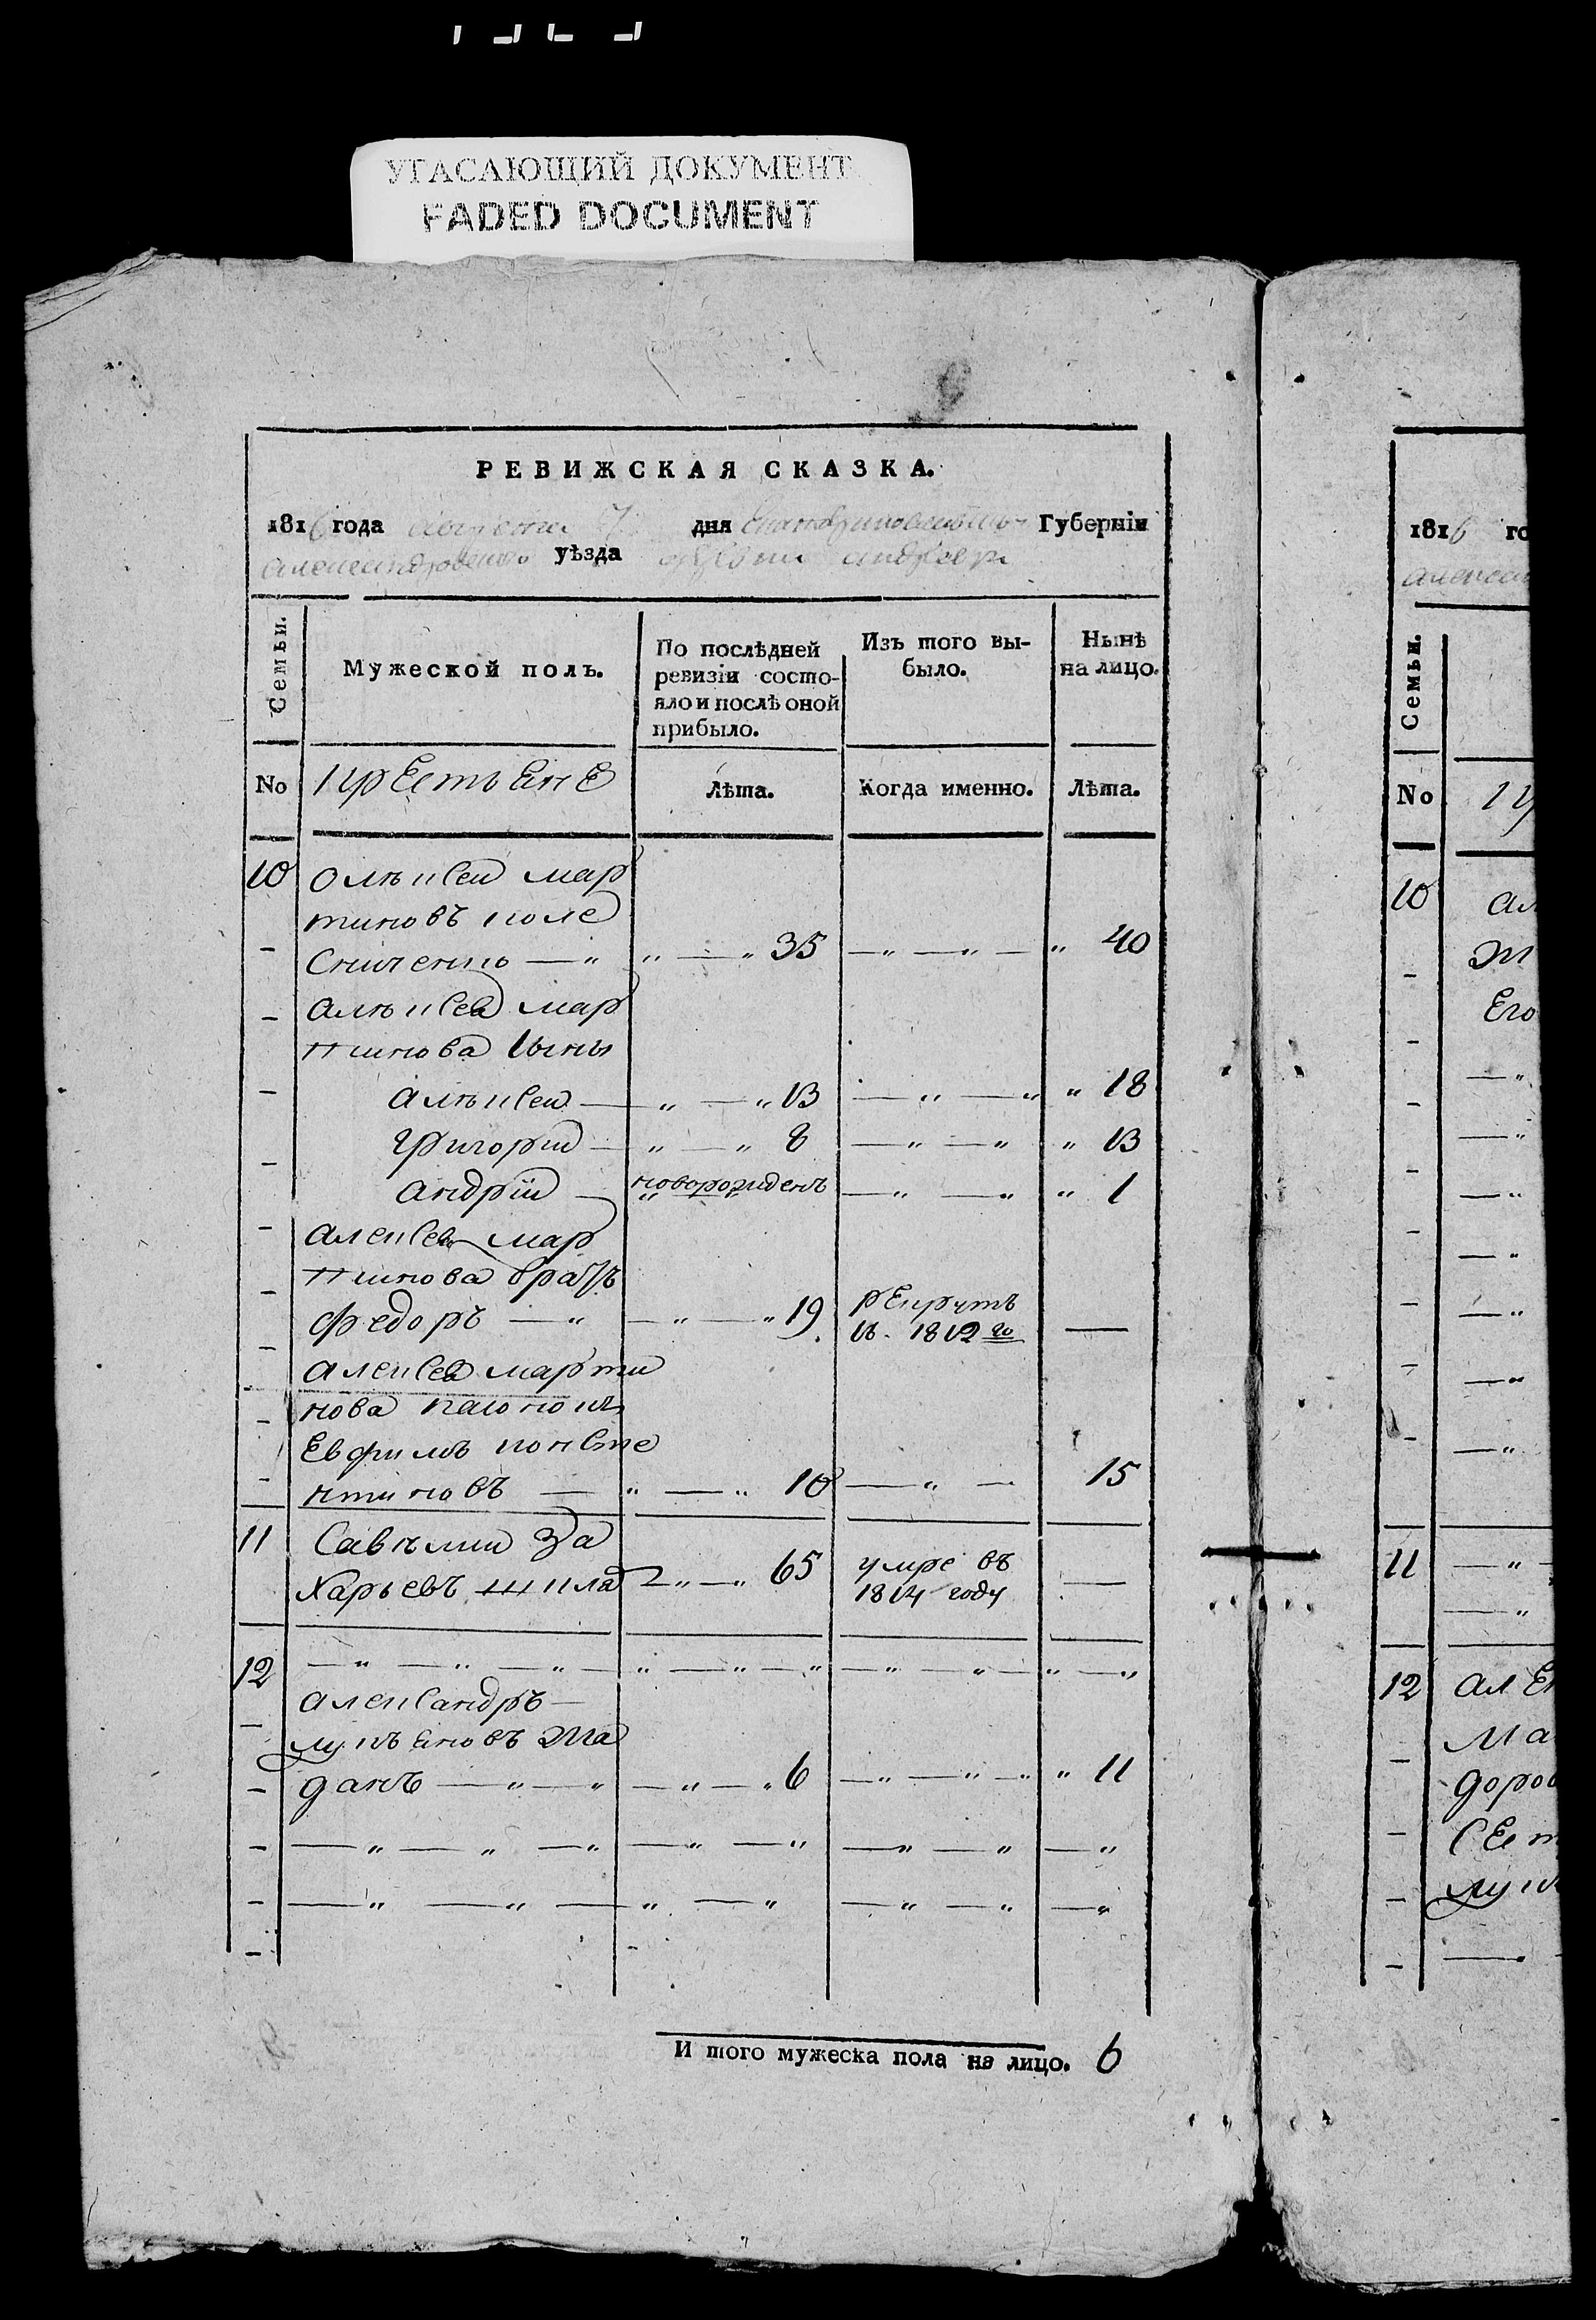 УГАСАЮЩИЙ ДОКУМЕНТ
FADED DOCUMENT
РЕВИЖСКАЯ СКАЗКА.
1816 года 7 дня Екатеринославской Губернїи
александровского уѣзда
Семьи.
Мужеской полъ.
По послѣдней ревизїи состо-
яло и послѣ оной
прибыло.
Изъ того вы-
было.
Нынѣ
на лицо.
No крестьяне Лѣта. Когда именно. Лѣта.
10 Олѣксей мар
тиновъ коле
сниченко — „ „ — „ 35 — „ — „ — „ 40
алѣксея мар
тинова сыны
алѣксей — „ — „ 13 — „ — „ „ 18
григорий — „ — „ 8 — „ — „ „ 13
андрїй — новорожденъ — „ — „ „ 1
алексея мар
тинова братъ
федоръ — „ — „ — „ 19 рекрутъ
въ 1812 го —
алексея марти
нова
Евфимъ консте
нтиновъ — „ — „ 10 — „ — 15
11 Савѣлий За
харьевъ шкла „ — „ 65 умре въ
1814 году —
12 — „ — „ — „ — „ — „ — „ — „ — „ — „ — „
александръ —
лукъяновъ жа
данъ — „ — „ — „ — „ 6 — „ — „ — „ „ 11
— „ — „ — „ — „ — „ — „ — „ — „
— „ — „ — „ — „ — „ — „ — „
И того мужеска пола на лицо. 6
1816 го
алексан
Семьи.
No
10 ал
Его
11 — „
— „
12 але
ма
доро
сест
лук